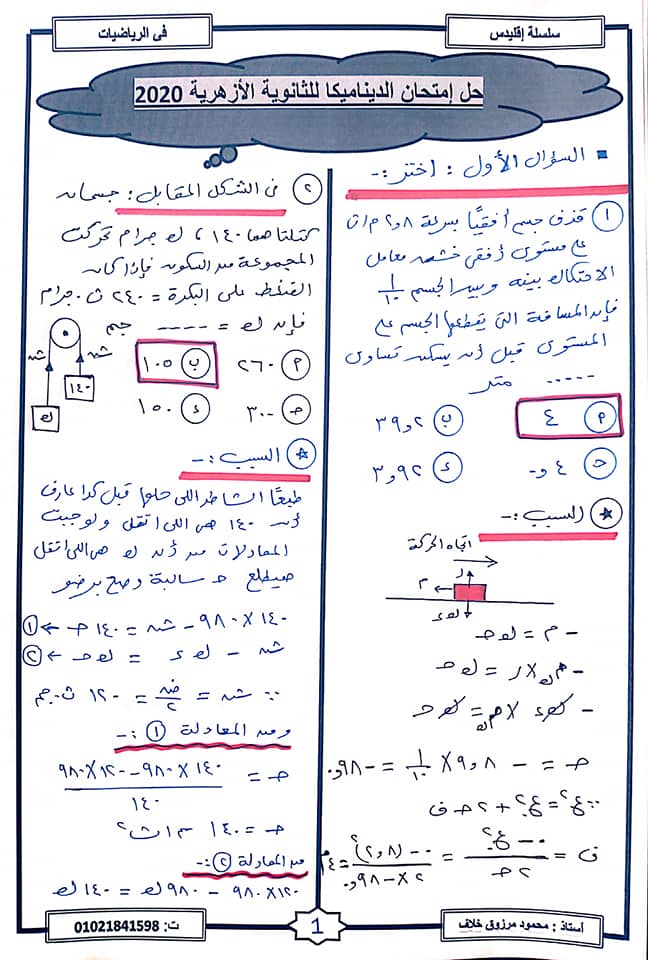 سلسلة إقليدس
فى الرياضيات
حل إمتحان الديناميكا للثانوية الأزهرية 2020
السؤال الأول : اختر :-
١ قذف جسم أفقيًا بسرعة ٢٫٨ م/ث
على مستوى أفقى خشن معامل
الاحتكاك بينه وبين الجسم ١/١٠
فإن المسافة التى يقطعها الجسم على
المستوى قبل أن يسكن تساوى
..... متر
م ٤
ب ٣٩٫٢
ح ٠٫٤
ء ٣٫٩٢
السبب :-
اتجاه الحركة
ر
م
ك ء
- م = ك ح
- م ك × ر = ك ح
- م ك × ك ء = ك ح
ح = - ٩٫٨ × ١/١٠ = - ٠٫٩٨
∵ ع² = ع.² + ٢ ح ف
ف = (٠ - ع.²)/(٢ ح) = (٠ - (٢٫٨)²)/(٢ × - ٠٫٩٨) = ٤ م
٢ فى الشكل المقابل : جسمان
كتلتاهما ١٤٠ ، ك جرام تحركت
المجموعة من السكون فإذا كان
الضغط على البكرة = ٢٤٠ ث.جرام
فإن ك = ---- جم
ش
ش
١٤٠
ك
م ٢٦٠
ب ١٠٥
ح ٣٠٠
ء ١٥٠
السبب :-
طبعًا الشاطر اللى حلها قبل كدا عارف
أن ١٤٠ هى اللى اتقل ولو جبت
المعادلات من أن ك هى اللى اتقل
هيطلع ح سالبة وصح برضو
١٤٠ × ٩٨٠ - ش = ١٤٠ ح ← ١
ش - ك ء = ك ح ← ٢
∵ ش = ض/٢ = ١٢٠ ث.جم
ومن المعادلة ١ :-
ح = (١٤٠ × ٩٨٠ - ١٢٠ × ٩٨٠)/١٤٠
ح = ١٤٠ سم/ث²
من المعادلة ٢ :-
١٢٠ × ٩٨٠ - ٩٨٠ ك = ١٤٠ ك
أستاذ : محمود مرزوق خلاف
1
ت: 01021841598